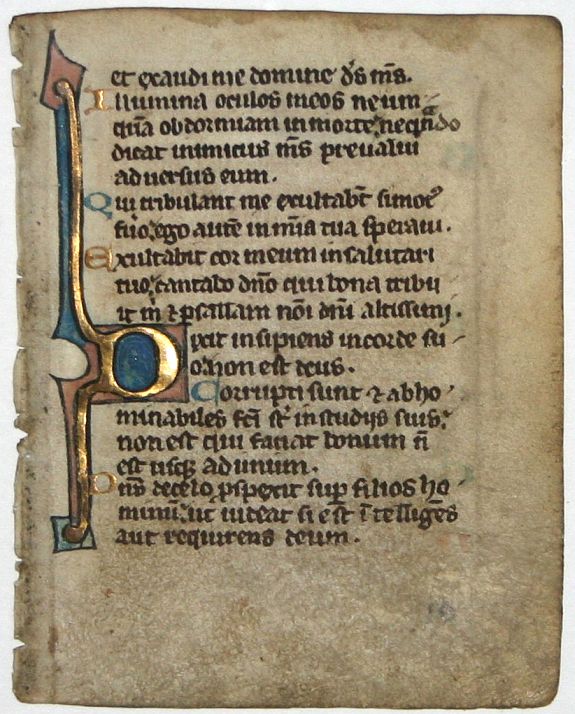 et exaudi me domine d̄s m̄s.
Illumina oculos meos ne um̄
quā obdormiam in morte, neqn̄do
dicat inimicus m̄s preualui
aduersus eum.
Qui tribulant me exultab̄t si mot᷒
fuo, ego autē in mīa tua speraui.
Exultabit cor meum in salutari
tuo, cantabo dn̄o qui bona tribu
it m̄ ⁊ psallam nōi dn̄i altissimi.
Dixit insipiens in corde su
o, non est deus.
Corrupti sunt ⁊ abho
minabiles fc̄i sт̄ in studijs suis,
non est qui faciat bonum n̄
est usq; ad unum.
Dn̄s de celo ꝓspexit sup̄ filios ho
minū, ut uideat si est ītelligēs
aut requirens deum.